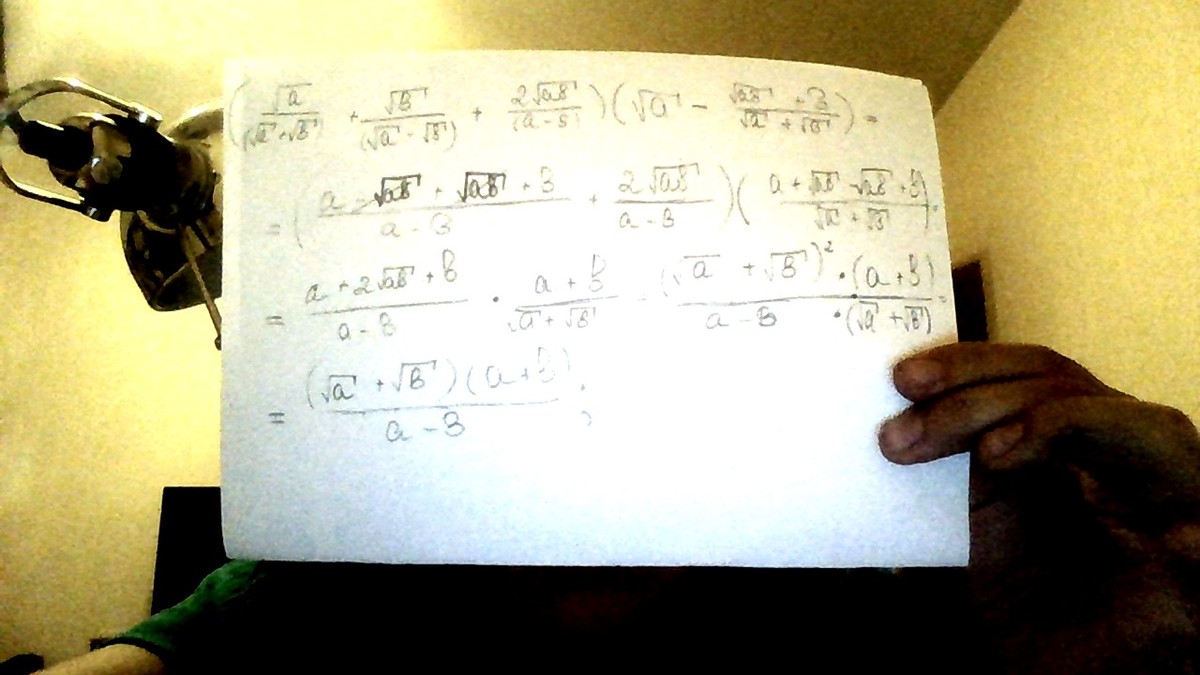 (√a/(√a+√b) + √b/(√a - √b) + 2√ab/(a-b)) (√a - (√ab + b)/(√a + √b)) =
= ((a - √ab + √ab + b)/(a - b) + 2√ab/(a - b)) ((a + √ab - √ab + b)/(√a + √b)) .
= (a + 2√ab + b)/(a - b) · (a + b)/(√a + √b) = ((√a + √b)² · (a + b))/(a - b · (√a + √b)) =
= ((√a + √b)(a + b))/(a - b)